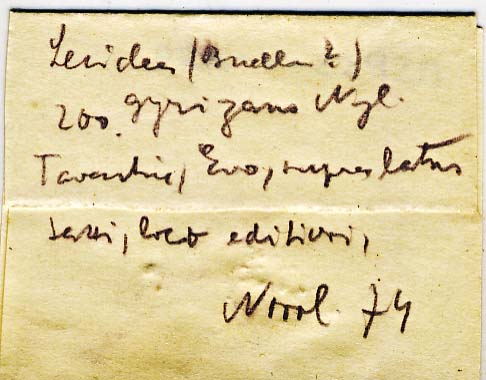 Lecidea (Buellia?)
200. gyrizans Nyl.
Tavastia, Evo, supra latus
saxi, loco editiori,
Norrl. 74